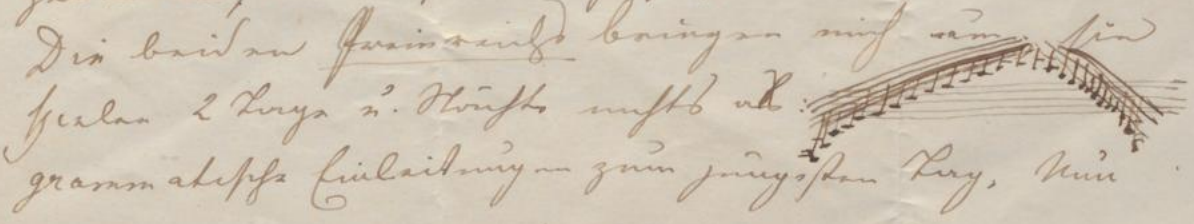 Die beiden Freinreichs bringen mich um. sie
spielen 2 Tage u. Nächte nichts als:
grammatische Einleitungen zum jüngsten Tag, Nun